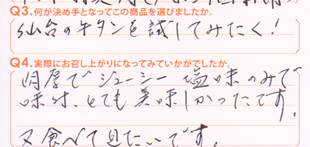 Q3.何が決め手となってこの商品を選びましたか。
仙台の牛タンを試してみたく！
Q4.実際にお召し上がりになってみていかがでしたか。
肉厚でジューシー 塩味のみで
味付、とても美味しかったです。
又食べて見たいです。